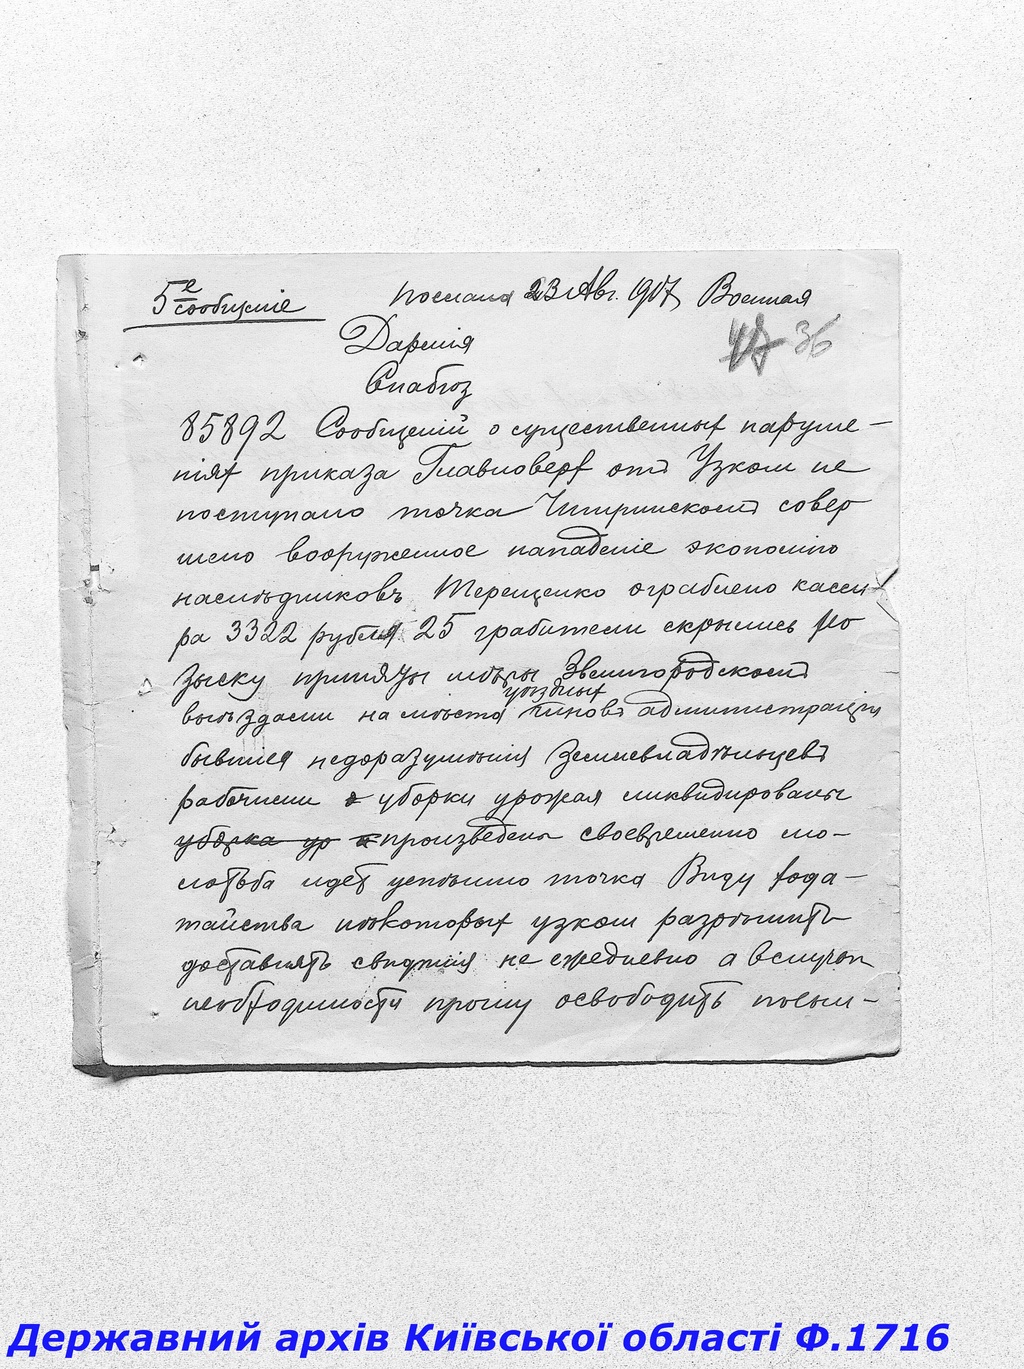 5е сообщеніе Послана 23 Авг. 1917 Военная
36
Дармія
Снабюз
85892 Сообщеній о существенных наруше-
ніях приказа Главноверх от Узком не
поступало точка Чигиринском совер
шено вооруженное нападеніе экономію
наслѣдников Терещенко ограблено касси
ра 3322 рубля 25 грабители скрылись Ро
зыску приняты мѣры Звенигородском
выѣздами на мѣста уѣздных
чинов администраціи
бывшея недоразумѣнія Землевладѣльцев
рабочими уборки урожая ликвидированы
уборка ур произведена своевременно мо-
лотьба идет успѣшно точка Виду хода-
тайства нѣкоторых узком разрѣшить
доставлять свиднія не ежедневно а в случаѣ
необходимости прошу освободить посыл-
Державний архів Київської області Ф.1716